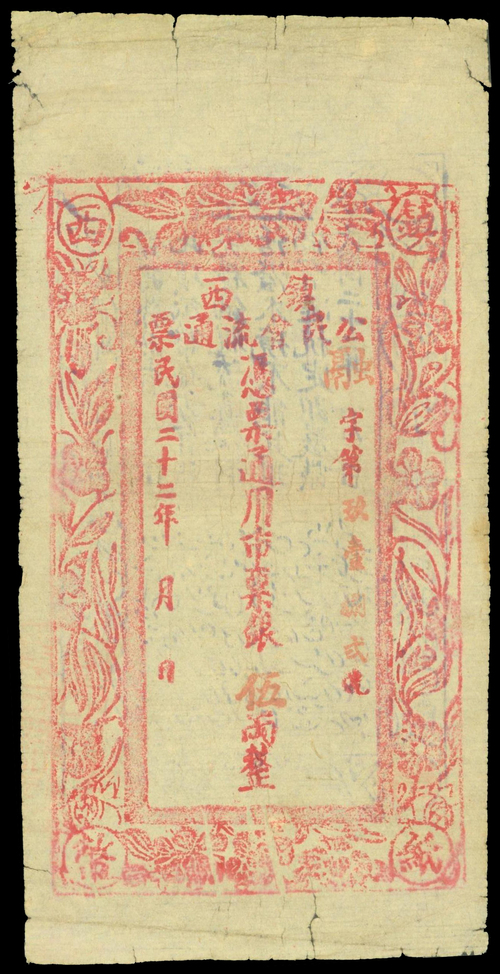 鎮西
紙幣
鎮西
公民會流通票
融字第玖壹捌貳號
憑票通用市票銀伍兩整
民國二十二年 月 日